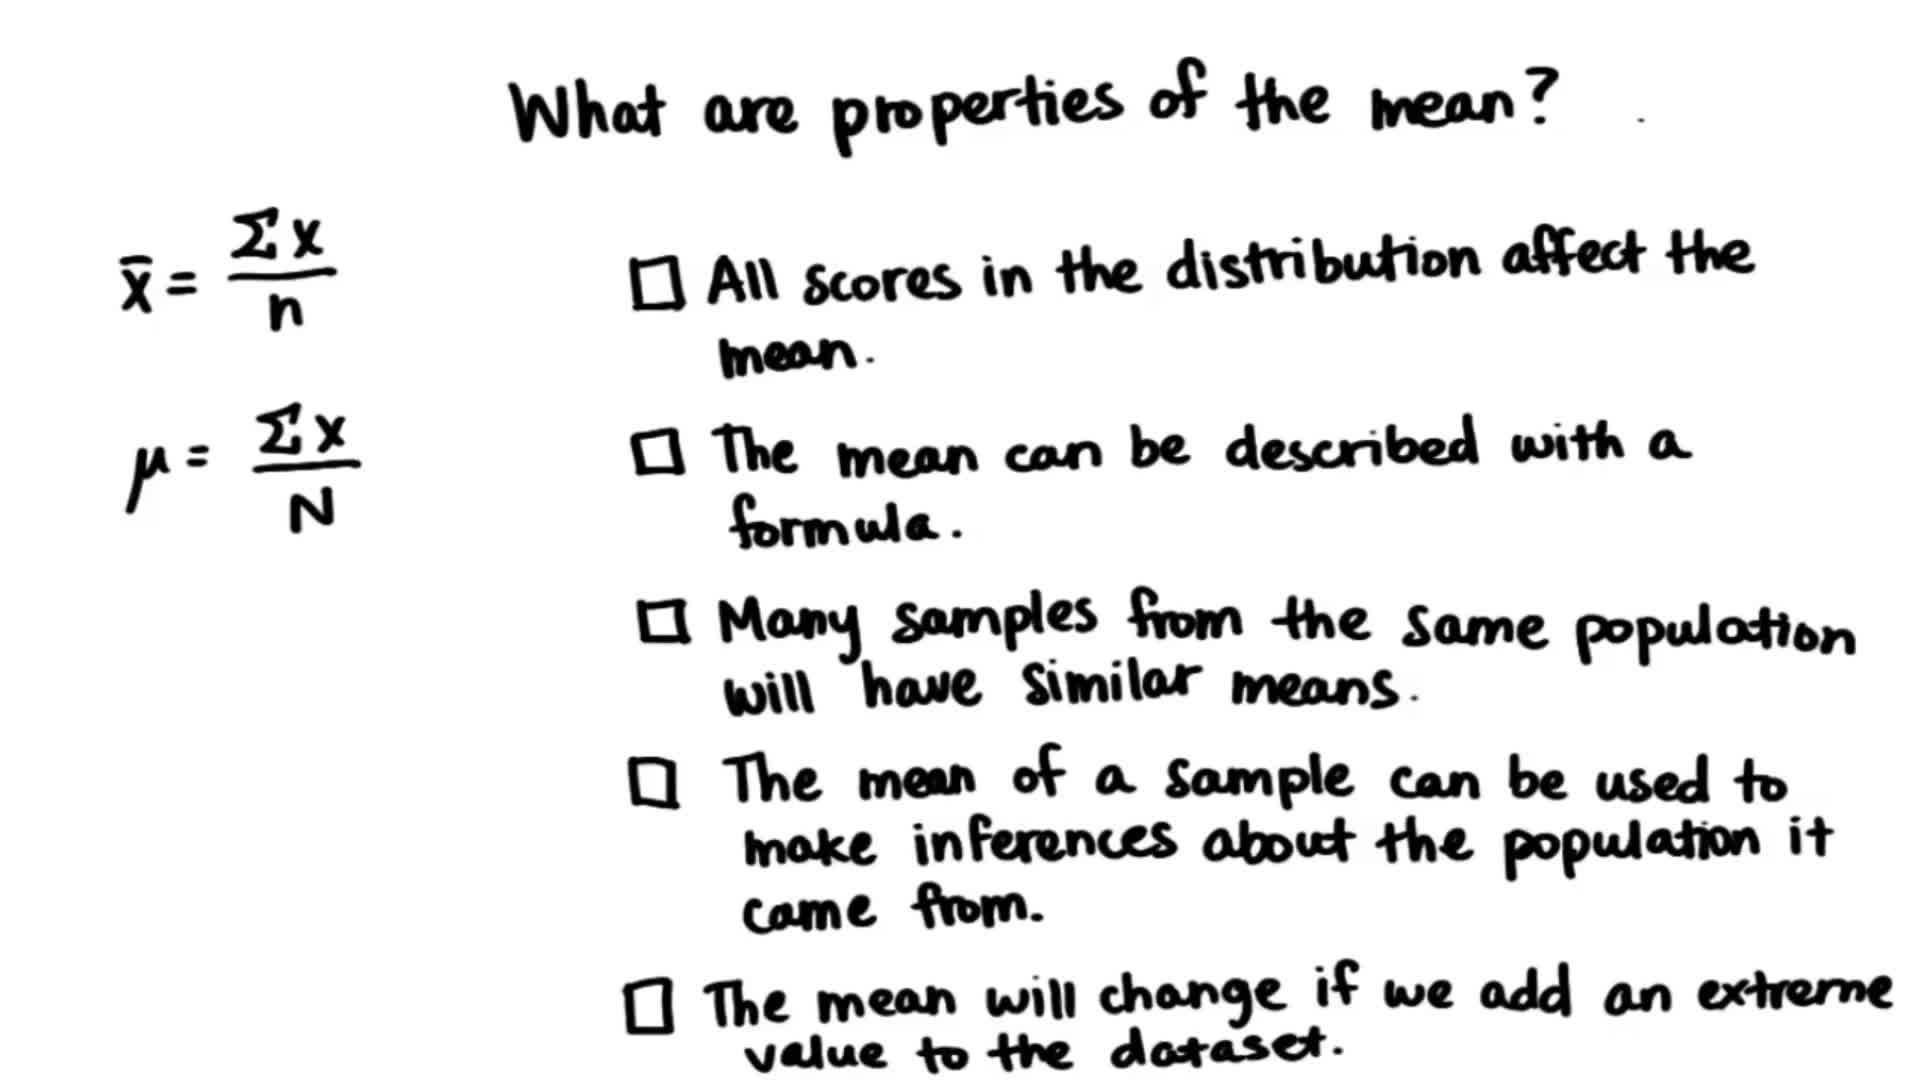 What are properties of the mean?
x̄ = Σx
n
μ = Σx
N
All scores in the distribution affect the
mean.
The mean can be described with a
formula.
Many samples from the same population
will have similar means.
The mean of a sample can be used to
make inferences about the population it
came from.
The mean will change if we add an extreme
value to the dataset.